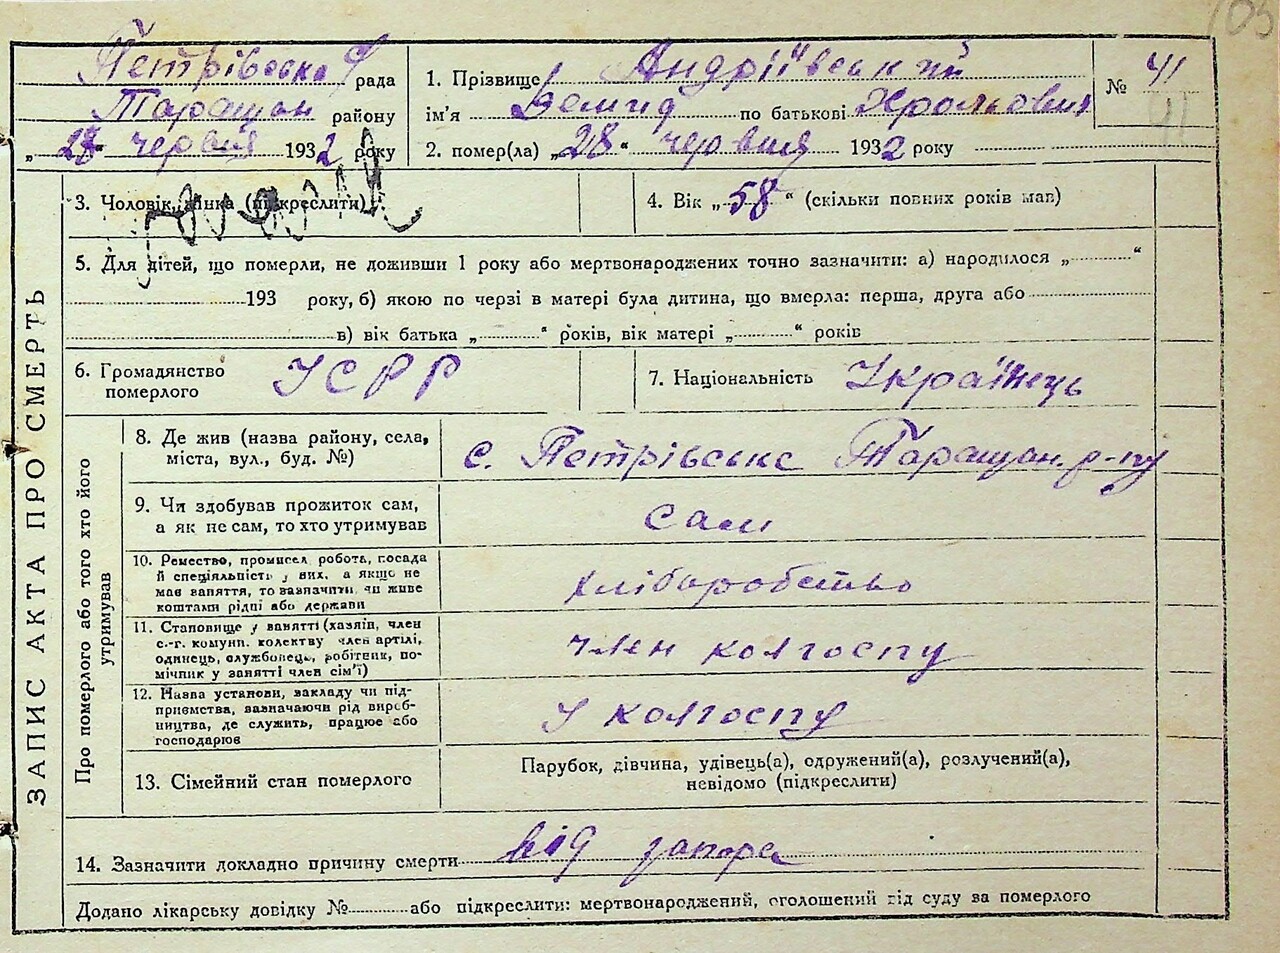 103
Петрівська рада
Таращан району
„ 28 червня 1932 року
1. Прізвище Андріївський
ім'я Демид по батькові Фролович
2. помер(ла) „28“ червня 1932 року
№ 41
41
3. Чоловік, жінка (підкреслити)
4. Вік „58“ (скільки повних років мав)
5. Для дітей, що померли, не доживши 1 року або мертвонароджених точно зазначити: а) народилося „ “
193 року, б) якою по черзі в матері була дитина, що вмерла: перша, друга або
в) вік батька „ “ років, вік матері „ “ років
ЗАПИС АКТА ПРО СМЕРТЬ
6. Громадянство
померлого
УСРР
7. Національність Українець
Про померлого або того хто його
утримував
8. Де жив (назва району, села,
міста, вул., буд. №)
с. Петрівське Таращан. р-ну
9. Чи здобував прожиток сам,
а як не сам, то хто утримував
сам
10. Ремество, промисел, робота, посада
й спеціяльність у них, а якщо не
мав заняття, то зазначити чи живе
коштами рідні або держави
хліборобство
11. Становище у занятті (хазяїн, член
с.-г. комун. колективу член артілі,
одинець, службовець, робітник, по-
мічник у занятті член сім'ї)
член колгоспу
12. Назва установи, закладу чи під-
приємства, зазначаючи рід вироб-
ництва, де служить, працює або
господарює
У колгоспу
13. Сімейний стан померлого
Парубок, дівчина, удівець(а), одружений(а), розлучений(а),
невідомо (підкреслити)
14. Зазначити докладно причину смерти від запора
Додано лікарську довідку № або підкреслити: мертвонароджений, оголошений від суду за померлого